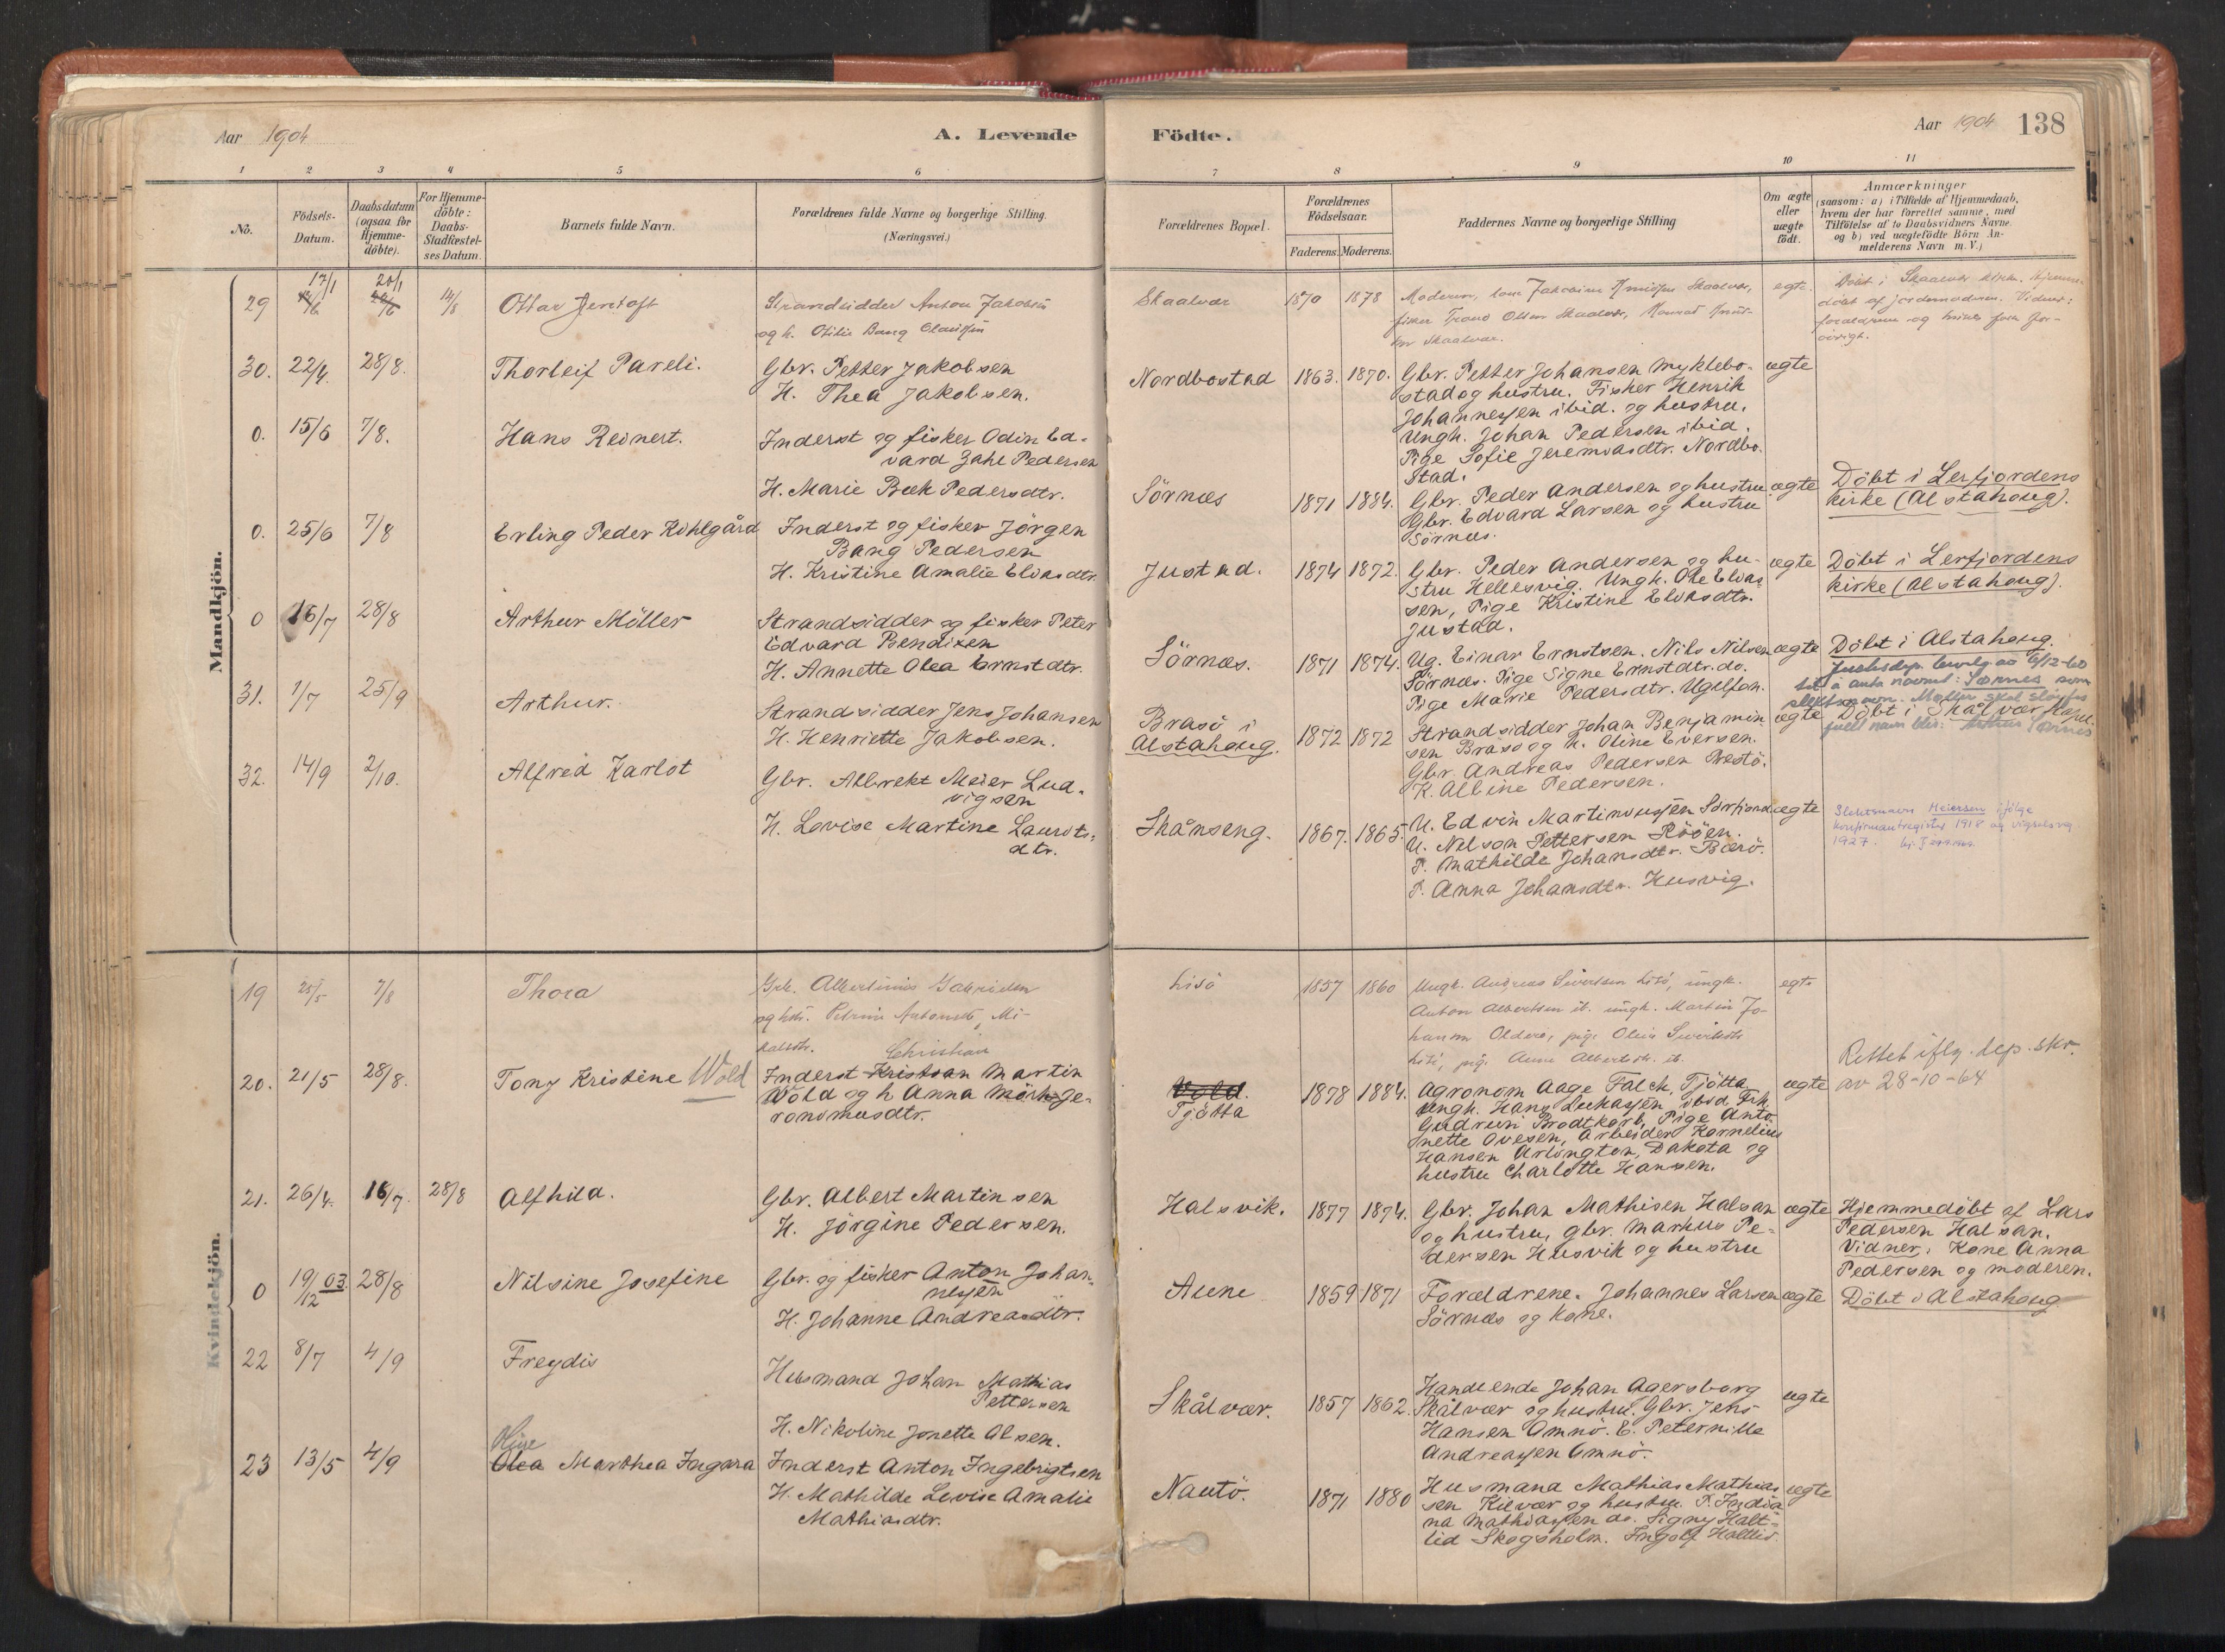 Aar 1904
A. Levende
Födte.
Aar 1904 138
1 2 3 4 5 6 7 8 9 10 11
No.
Födsels-
Datum.
Daabsdatum
(ogsaa for
Hjemme-
döbte).
For Hjemme-
döbte:
Daabs-
Stadfæstel-
ses Datum.
Barnets fulde Navn.
Forældrenes fulde Navne og borgerlige Stilling.
(Næringsvei.)
Forældrenes Bopæl.
Forældrenes
Födselsaar.
Faderens. Moderens.
Faddernes Navne og borgerlige Stilling
Om ægte
eller
uægte
födt.
Anmærkninger
(saasom: a) i Tilfælde af Hjemmedaab,
hvem der har forrettet samme, med
Tilföielse af to Daabsvidners Navne.
og b) ved uægtefödte Börn An-
melderens Navn m. V.)
Mandkjön.
29 17/1 20/1 14/8 Ottar Jentoft
Strandsidder Anton Jakobsen
og h. Otilie Bang Clausen
Skaalvær 1870 1878
Moderen, Jakobine Skaalvær,
fisker Trond Olsen Skaalvær, Konrad
Skaalvær.
egte.
Döbt i Skaalvær kirke. Hjemme-
döbt af jordemoderen. Vidner:
forældrene og
30. 22/4. 28/8. Thorleif Pareli.
Gbr. Petter Jakobsen
H. Thea Jakobsen.
Nordbostad 1863. 1870.
Gbr. Petter Johansen Myklebo-
stad og hustru. Fisker Henrik
Johannessen ibid. og hustru.
Ungk. Johan Pedersen ibid.
Pige Sofie Jeremiasdtr. Nordbo-
stad.
ægte
0. 15/6 7/8. Hans Reinert.
Inderst og fisker Odin Ed-
vard Zahl Pedersen
H. Marie Bech Pedersdtr.
Sörnæs 1871 1884.
Gbr. Peder Andersen og hustru
Gbr. Edvard Larsen og hustru
Sörnæs.
ægte
Döbt i Lerfjordens
kirke (Alstahoug).
0. 25/6 7/8 Erling Peder Kohlgård
Inderst og fisker Jörgen
Bang Pedersen
H. Kristine Amalie Eliasdtr.
Justad. 1874 1872.
Gbr. Peder Andersen og hu-
stru Hellesvig. Ungk. Ole Elias
sen, Pige Kristine Eliasdtr.
Justad.
ægte
Döbt i Lerfjordens
kirke (Alstahoug).
0 16/7 28/8 Arthur Möller
Strandsidder og fisker Peter
Edvard Bendixen
H. Annette Olea Ernstdtr.
Sörnæs. 1871 1874.
Ug. Einar Ernstsen. Nils Nilsen
Sörnæs. Pige Signe Ernstdtr. do.
Pige Marie Pedersdtr. Ugelfon.
ægte
Döbt i Alstahoug.
Justisdep. bevilg. av 6/12-60
til å anta navnet: Sørnes som
slektsnavn. Møller skal sløyfes
fullt navn blir: Arthur Sørnes
31. 1/7 25/9 Arthur.
Strandsidder Jens Johansen
H. Henriette Jakobsen.
Brasö i
Alstahoug. 1872 1872
Strandsidder Johan Benjamin
sen Brasö og h. Oline Eversen.
Gbr. Andreas Pedersen Prestö.
K. Albine Pedersen.
ægte
Döbt i Skålvær kapel.
32. 14/9 2/10. Alfred Karlot
Gbr. Albrekt Meier Lud-
vigsen
H. Lovise Martine Laurits-
dtr.
Skånseng. 1867. 1865.
U. Edvin Martinussen Sörfjord
U. Nelson Pettersen Rööen.
P. Mathilde Johansdtr. Bærö.
P. Anna Johansdtr. Husvig.
ægte
Slektsnavn Meiersen ifølge
konfirmantregister 1918 og vigselsreg
1927.
Kvindekjön.
19 25/5 7/8 Thora
Gbr. Albertinus Gabrielsen
og hstr. Petrine Antonette Mi-
kalsdtr.
Lisö 1857 1860
Ungk. Andreas Sivertsen Litö, ungk.
Anton Albertsen ib. ungk. Martin Jo-
hansen Olderö, pige Olea Sivertsdtr
Litö, pige Anne Albertsdtr. ib.
egte
20. 21/5 28/8. Tony Kristine Wold
Christian
Inderst Kristian Martin
Wold og h Anna Mörk Ge-
ronimusdtr.
Vold.
Tjötta 1878 1884.
Agronom Aage Falch, Tjötta
Ungk. Hans Lukassen, ibid, Frk.
Gudrun Brodtkorb, Pige Anto
nette Ovesen, Arbeider Kornelius
Hansen Arlington, Dakota og
hustru Charlotte Hansen.
ægte
Rettet iflg. dep. skr.
av 28-10-64
21. 26/4. 16/7. 28/8 Alfhild.
Gbr. Albert Martinsen
H. Jörgine Pedersen.
Halsvik. 1877 1874.
Gbr. Johan Mathisen Halsan
og hustru, gbr. Markus Pe-
dersen Husvik og hustru
ægte
Hjemmedöbt af Lars
Pedersen Halsan.
Vidner: Kone Anna
Pedersen og moderen.
0 19/12 03. 28/8 Nilsine Josefine
Gbr. og fisker Anton Johan-
nessen
H. Johanne Andreasdtr.
Aune 1859 1871
Forældrene. Johannes Larsen
Sörnæs og kone.
ægte
Döbt i Alstahoug
22 8/7 4/9 Freydis
Husmand Johan Mathias
Pettersen
H. Nikoline Jonette Olsen.
Skålvær. 1857 1862.
Handlende Johan Agersborg
Skålvær og hustru. Gbr. Jens
Hansen Omnö. E. Peternille
Andreassen Omnö.
ægte
Oline
23 13/5 4/9 Olea Marthea Ingara
Inderst Anton Ingebrigtsen
H. Mathilde Lovise Amalie
Mathiasdtr.
Nautö. 1871 1880
Husmand Mathias Mathias
sen Kilvær og hustru. P. India
na Mathiassen do. Signy Halt-
lid Skogsholm. Ingolf Haltlid.
ægte